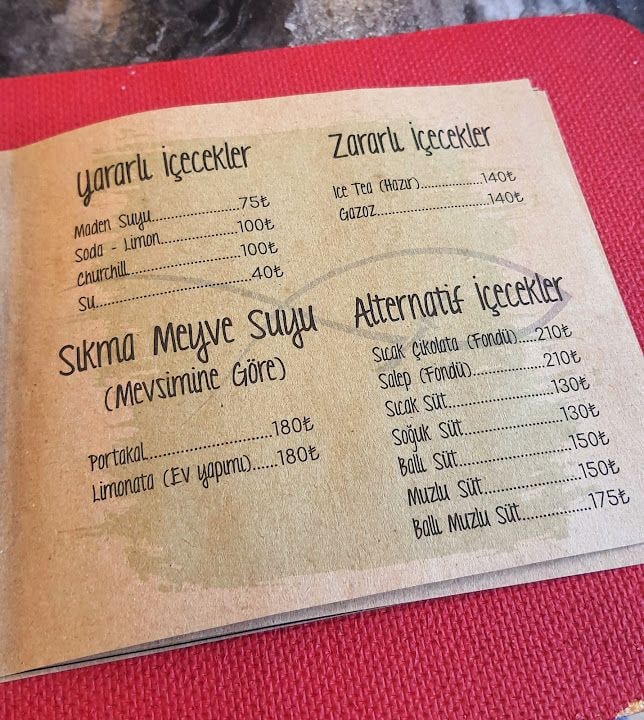 Yararlı İçecekler
Maden Suyu........................75₺
Soda - Limon.....................100₺
Churchill............................100₺
Su.......................................40₺
Sıkma Meyve Suyu
(Mevsimine Göre)
Portakal............................180₺
Limonata (Ev Yapımı)......180₺
Zararlı İçecekler
Ice Tea (Hazır)................140₺
Gazoz..............................140₺
Alternatif İçecekler
Sıcak Çikolata (Fondü).....210₺
Salep (Fondü)...................210₺
Sıcak Süt..........................130₺
Soğuk Süt.........................130₺
Ballı Süt............................150₺
Muzlu Süt.........................150₺
Ballı Muzlu Süt.................175₺